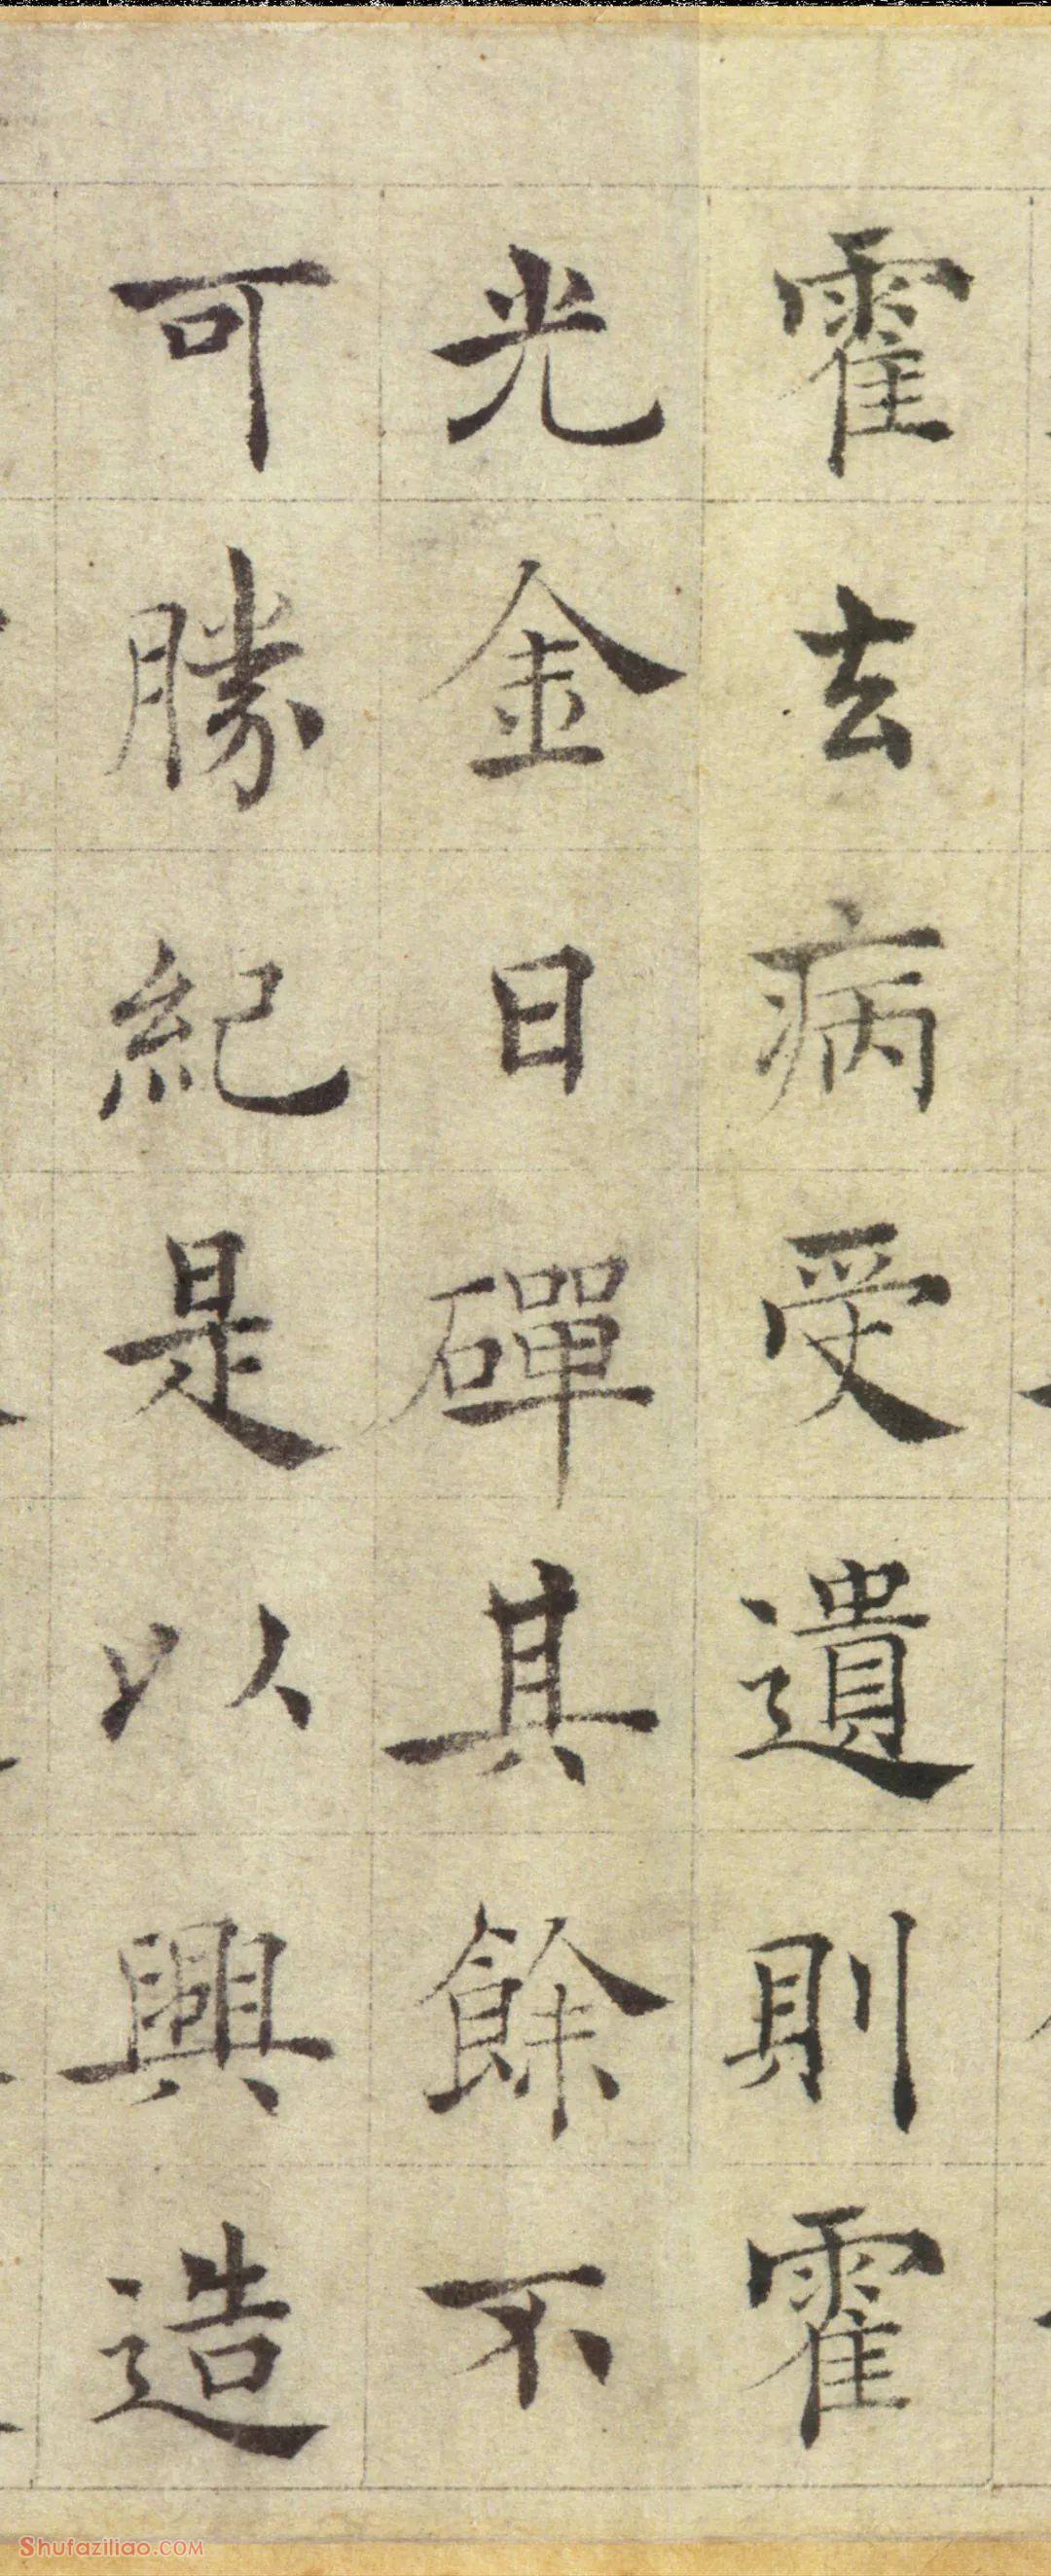 霍去病受遺則霍
光金日磾其餘不
可勝紀是以興造
Shufaziliao.COM